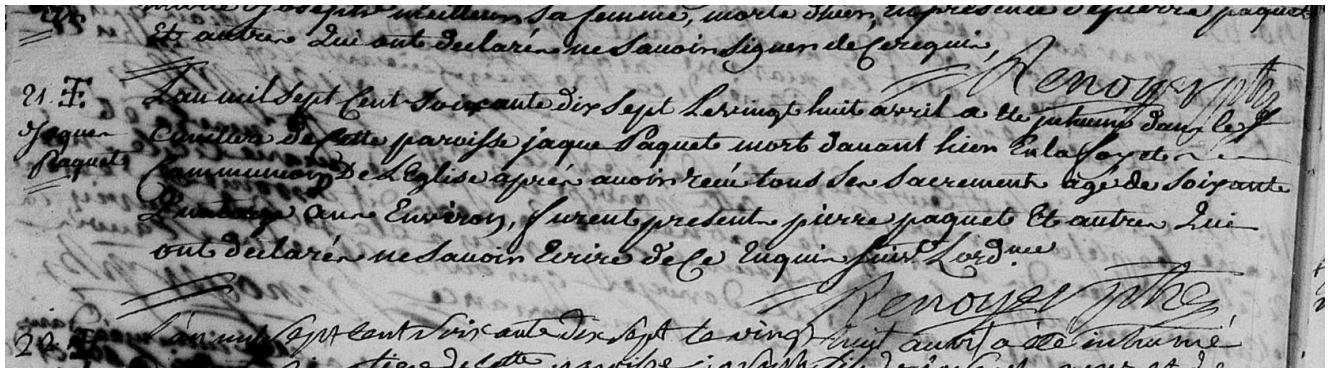 marie joseph meilleur sa femme, morte d'hier, en presence de pierre paquet
Et autres Qui ont declarés ne savoir signer de ce requis,
Renoyer ptre
21. S.
L'an mil sept Cent Soixante dix Sept Le vingt huit avril a été inhumé dans le
jaque Paquet
Cimitiere de Cette paroisse jaque Paquet mort d'avant hier En la foy et
Communion De L'Eglise aprés avoir reçu tous ses sacrement agé de soixante
quatorze ans Environ, furent present pierre paquet Et autres Qui
ont declarés ne savoir Ecrire de Ce Enquis suivt Lordnce
Renoyer ptre
22 S.
L'an mil sept cent soixante dix sept le vingt huit avril a été inhumé